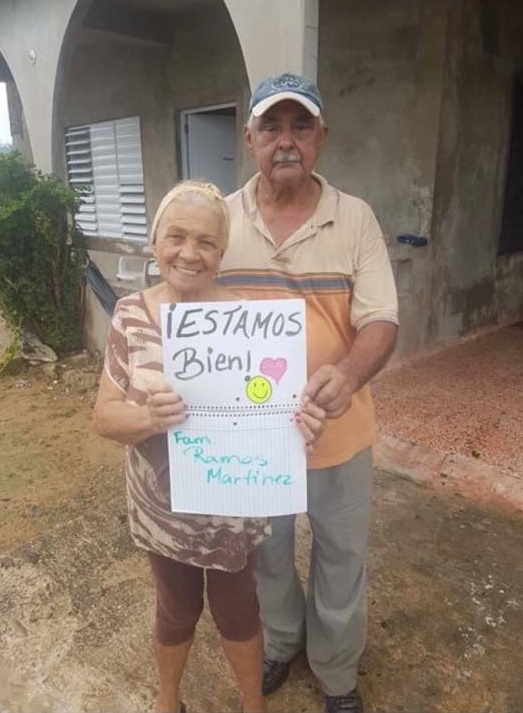 ¡ESTAMOS
Bien!
Fam.
Ramos
Martínez